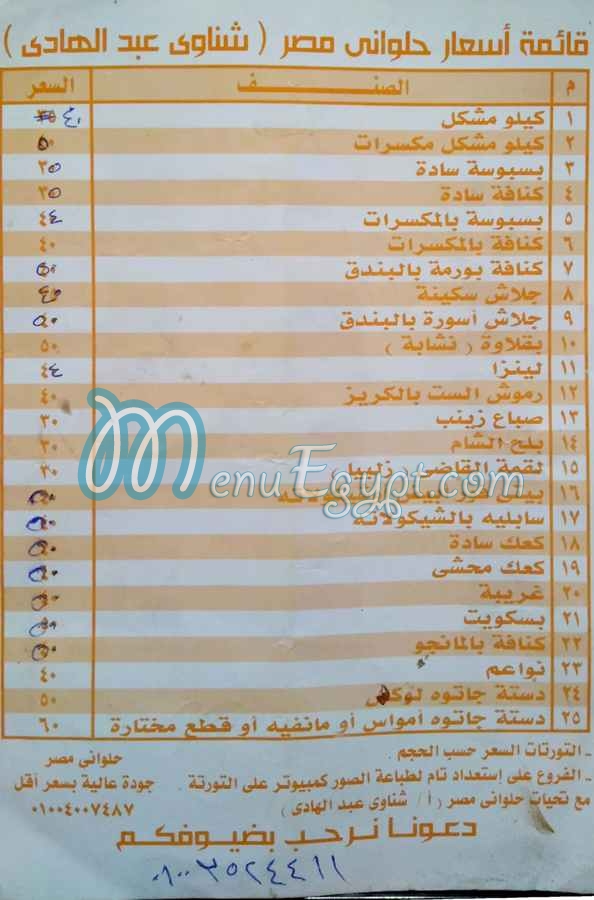 قائمة أسعار حلوانى مصر ( شناوى عبد الهادى )
م الصنف السعر
١ كيلو مشكل ٤٠
٢ كيلو مشكل مكسرات ٥٠
٣ بسبوسة سادة ٣٥
٤ كنافة سادة ٣٥
٥ بسبوسة بالمكسرات ٤٤
٦ كنافة بالمكسرات ٤٠
٧ كنافة بورمة بالبندق
٨ جلاش سكينة
٩ جلاش أسورة بالبندق
١٠ بقلاوة ( نشابة ) ٥٠
١١ لينزا ٤٤
١٢ رموش الست بالكريز ٤٠
١٣ صباع زينب ٣٠
١٤ بلح الشام ٣٠
١٥ لقمة القاضى ٣٠
١٦
١٧ سابليه بالشيكولاتة
١٨ كعك سادة
١٩ كعك محشى
٢٠ غريبة
٢١ بسكويت
٢٢ كنافة بالمانجو
٢٣ نواعم ٤٠
٢٤ دستة جاتوه لوكس ٥٠
٢٥ دستة جاتوه أمواس أو مانفيه أو قطع مختارة ٦٠
MenuEgypt.com
ـ التورتات السعر حسب الحجم .
ـ الفروع على إستعداد تام لطباعة الصور كمبيوتر على التورتة .
مع تحيات حلوانى مصر ( أ / شناوى عبد الهادى )
حلوانى مصر
جودة عالية بسعر أقل
٠١٠٠٤٠٠٧٤٨٧
دعونا نرحب بضيوفكم
٠١٠٠٣٥٢٤٤١١